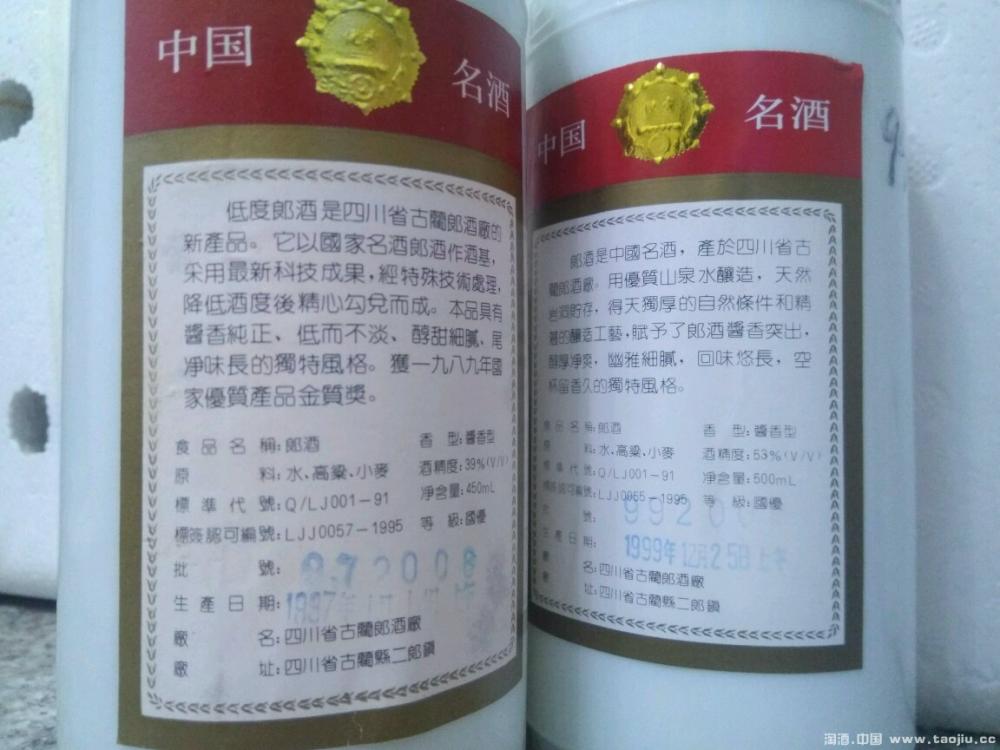 中国 名酒
低度郎酒是四川省古藺郎酒廠的
新產品。它以國家名酒郎酒作酒基，
采用最新科技成果，經特殊技術處理，
降低酒度後精心勾兌而成。本品具有
醬香純正、低而不淡、醇甜細膩、尾
凈味長的獨特風格。獲一九八九年國
家優質產品金質獎。
食品名稱：郎酒 香型：醬香型
原料：水、高粱、小麥 酒精度：39%(V/V)
標準代號：Q/LJ001-91 凈含量：450mL
標簽認可編號：LJJ0057-1995 等級：國優
批號：972008
生產日期：1997年
廠名：四川省古藺郎酒廠
廠址：四川省古藺縣二郎鎮
中国 名酒
郎酒是中國名酒，產於四川省古
藺郎酒廠。用優質山泉水釀造，天然
岩洞貯存，得天獨厚的自然條件和精
湛的釀造工藝，賦予了郎酒醬香突出，
醇厚凈爽，幽雅細膩，回味悠長，空
杯留香久的獨特風格。
食品名稱：郎酒 香型：醬香型
原料：水、高粱、小麥 酒精度：53%(V/V)
標準代號：Q/LJ001-91 凈含量：500mL
標簽認可編號：LJJ0055-1995 等級：國優
號：9920
生產日期：1999年12月25日上午
廠名：四川省古藺郎酒廠
廠址：四川省古藺縣二郎鎮
淘酒.中国 www.taojiu.cc